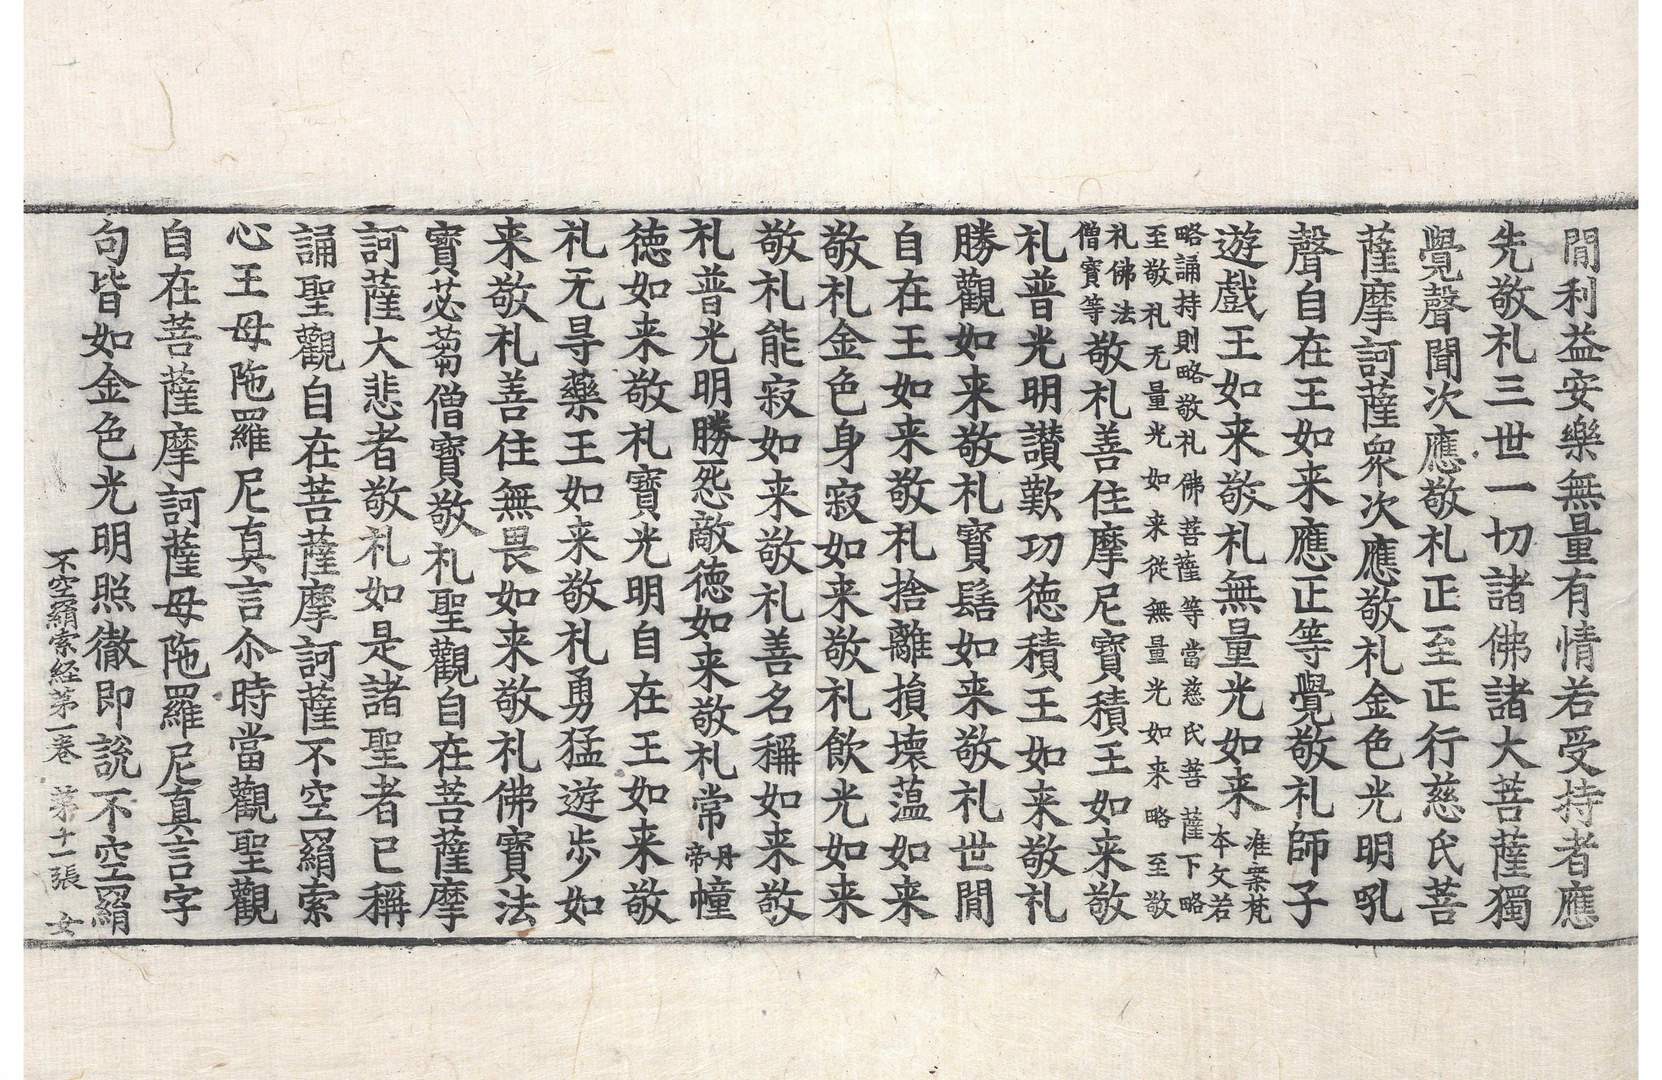 間利益安樂無量有情若受持者應
先敬礼三世一切諸佛諸大菩薩獨
覺聲聞次應敬礼正至正行慈氏菩
薩摩訶薩衆次應敬礼金色光明吼
聲自在王如来應正等覺敬礼師子
遊戲王如来敬礼無量光如来准案梵本文若
略誦持則略敬礼佛菩薩等當慈氏菩薩下略
至敬礼无量光如来從無量光如来略至敬
礼佛法僧寶等敬礼善住摩尼寶積王如来敬
礼普光明讃歎功徳積王如来敬礼
勝觀如来敬礼寶髻如来敬礼世間
自在王如来敬礼捨離損壊薀如来
敬礼金色身寂如来敬礼飲光如来
敬礼能寂如来敬礼善名稱如来敬
礼普光明勝怨敵徳如来敬礼常丹帝幢
徳如来敬礼寶光明自在王如来敬
礼无㝵藥王如来敬礼勇猛遊步如
来敬礼善住無畏如来敬礼佛寶法
寶苾蒭僧寶敬礼聖觀自在菩薩摩
訶薩大悲者敬礼如是諸聖者已稱
誦聖觀自在菩薩摩訶薩不空羂索
心王母陁羅尼真言尒時當觀聖觀
自在菩薩摩訶薩母陁羅尼真言字
句皆如金色光明照徹即説不空羂
不空羂索経第一卷 第十一張 女